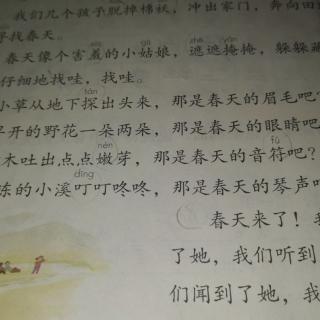 我们几个孩子脱掉棉袄，冲出家门，奔向田
寻找春天。
gū zhē yǎn
春天像个害羞的小姑娘，遮遮掩掩，躲躲藏
仔细地找哇，找哇。
tàn
小草从地下探出头来，那是春天的眉毛吧？
早开的野花一朵两朵，那是春天的眼睛吧
nèn fú
木吐出点点嫩芽，那是春天的音符吧？
dīng
冻的小溪叮叮咚咚，那是春天的琴声吧
春天来了！我
了她，我们听到
们闻到了她，我